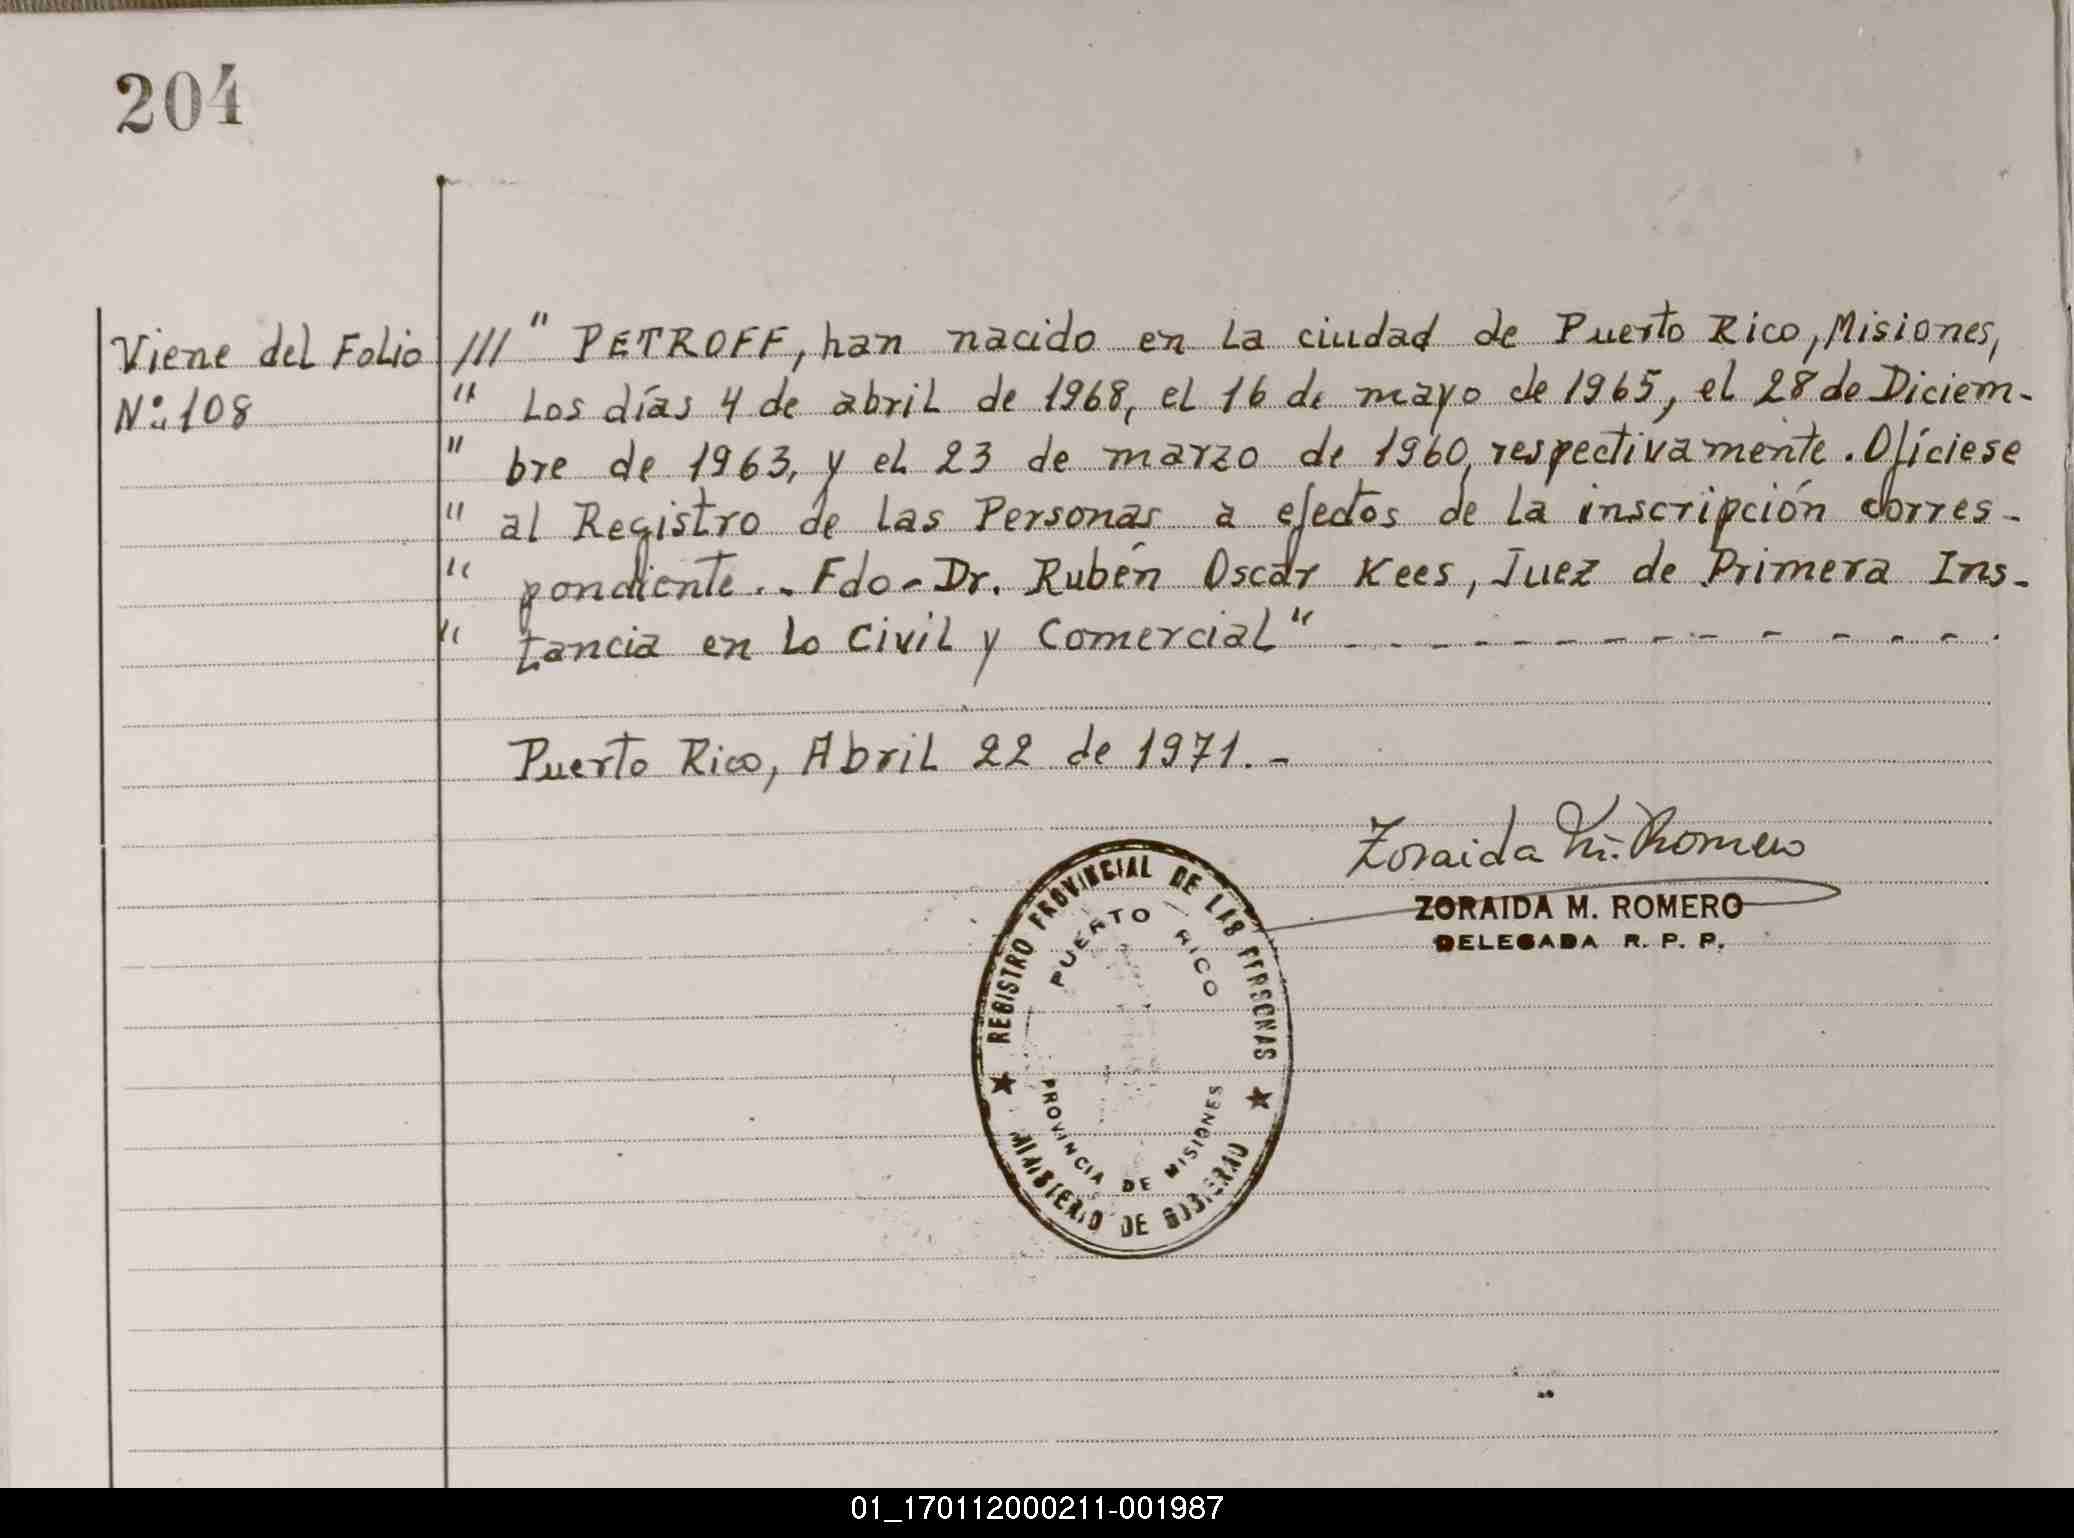 204
Viene del Folio
Nº 108
/// " PETROFF, han nacido en la ciudad de Puerto Rico, Misiones,
" Los días 4 de abril de 1968, el 16 de mayo de 1965, el 28 de Diciem-
" bre de 1963, y el 23 de marzo de 1960, respectivamente. Ofíciese
" al Registro de las Personas a efectos de la inscripción corres-
" pondiente.. Fdo- Dr. Rubén Oscar Kees, Juez de Primera Ins-
" tancia en lo Civil y Comercial" - - - - - - - - - - - -
Puerto Rico, Abril 22 de 1971.-
Zoraida M. Romero
ZORAIDA M. ROMERO
DELEGADA R. P. P.
REGISTRO PROVINCIAL DE LAS PERSONAS
PUERTO RICO
PROVINCIA DE MISIONES
MINISTERIO DE GOBIERNO
01_170112000211-001987